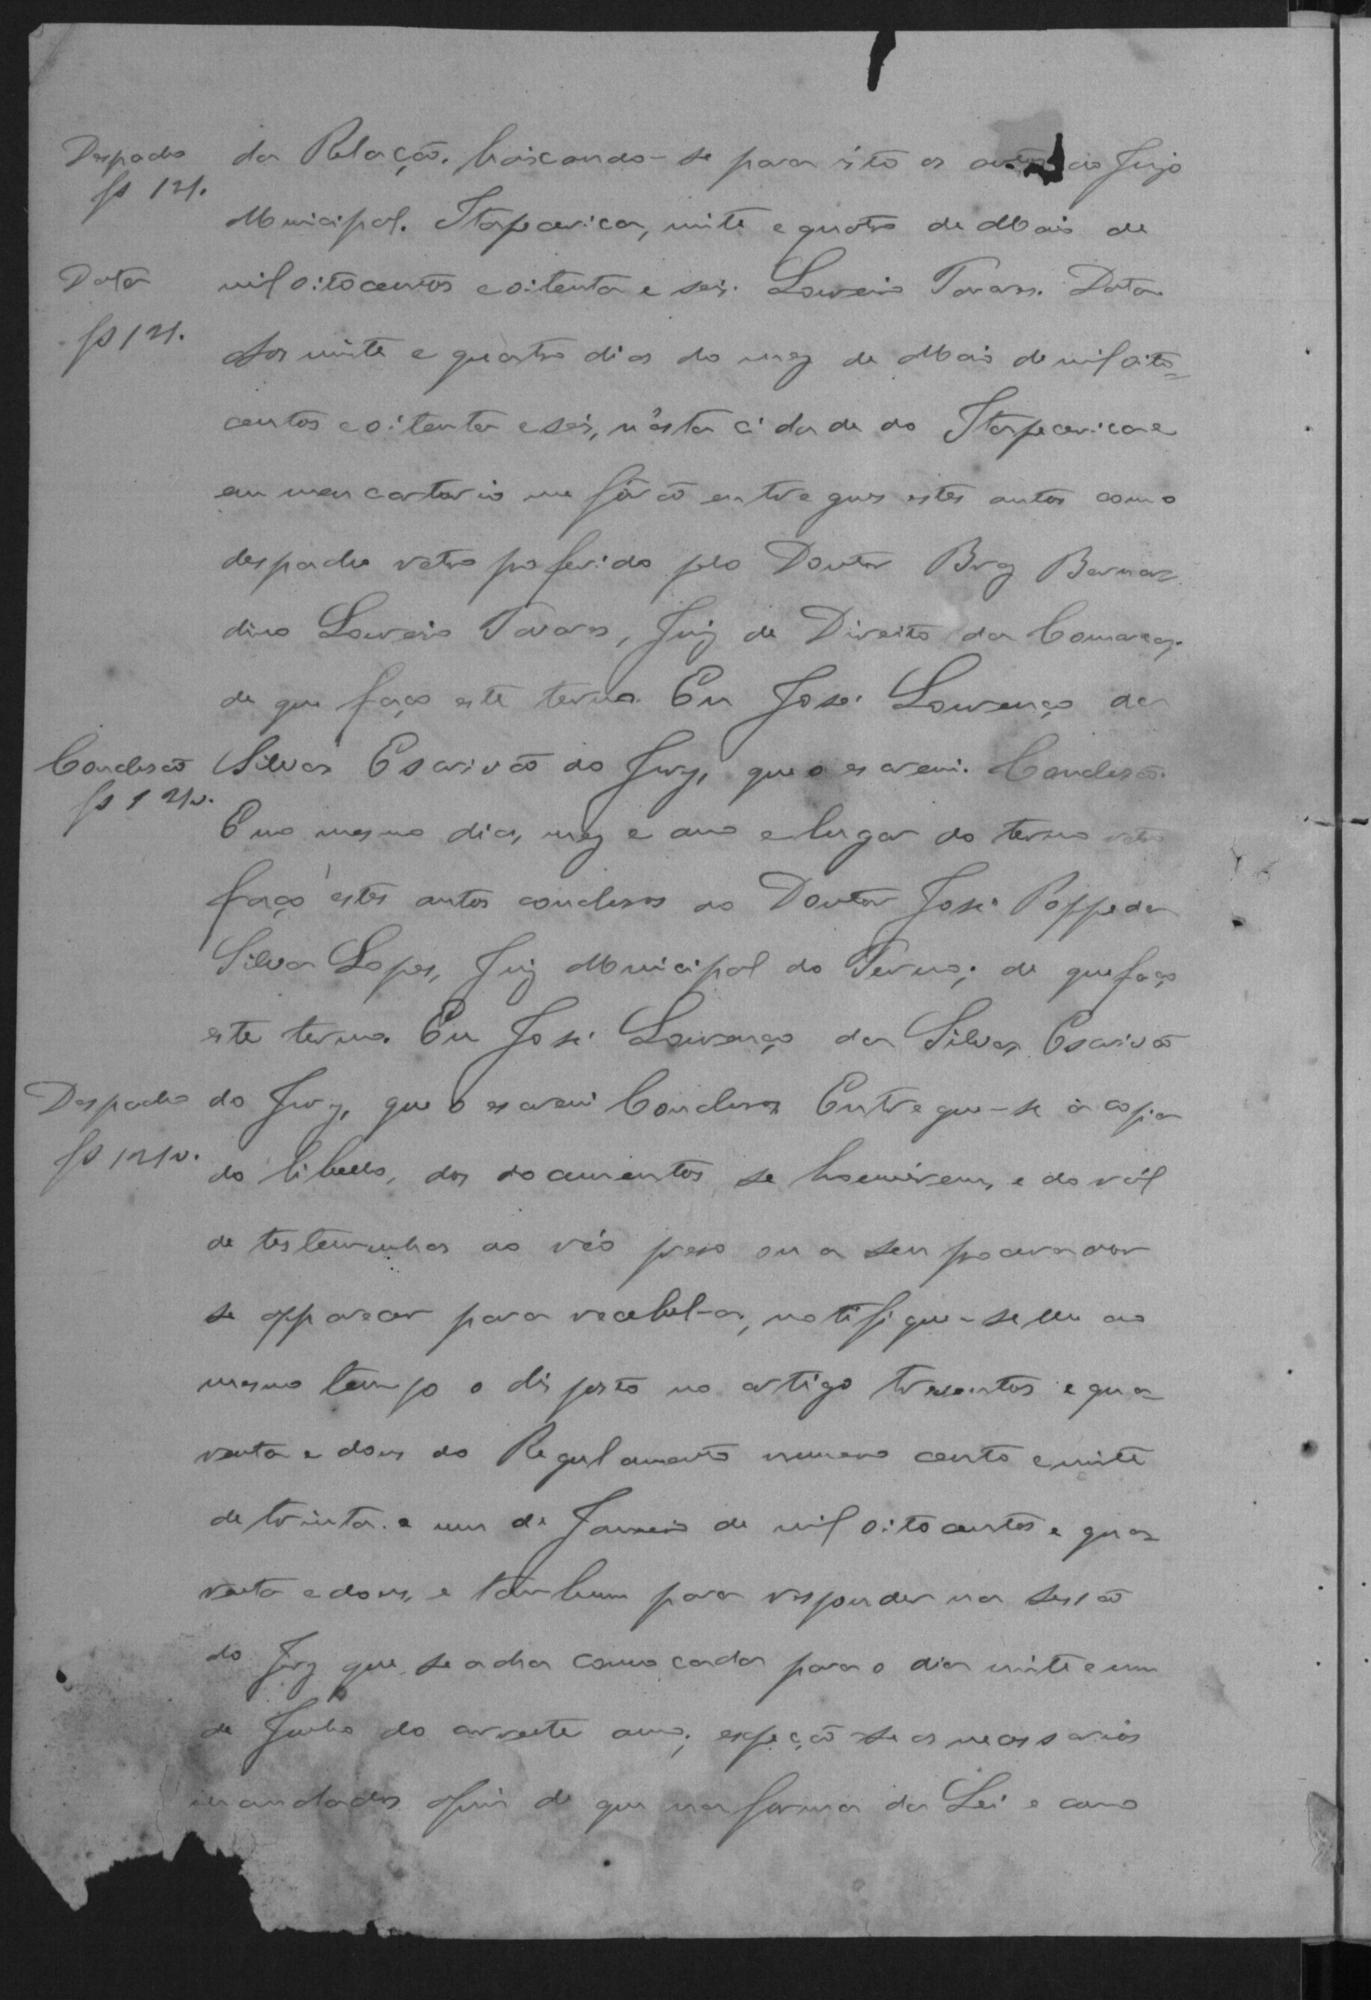 Despacho
fs 121.
da Relação, baixando-se para isto os autos ao Juizo
Municipal. Itapecerica, vinte e quatro de Maio de
Data
mil oitocentos e oitenta e seis. Loureiro Tavares. Data
fs 121.
Aos vinte e quatro dias do mez de Maio de mil oito=
centos e oitenta e seis, n'ésta cidade do Itapecerica e
em meu cartorio me fôrão entregues estes autos com o
despacho retro proferido pelo Doutor Braz Bernar=
dino Loureiro Tavares, Juiz de Direito da Comarca,
de que faço este termo. Eu José Lourenço da
Conclusão
fs 121v.
Silva Escrivão do Jury, que o escrevi. Conclusão.
E no mesmo dia, mez e ano e lugar do termo retro
faço estes autos conclusos ao Doutor José Poppe da
Silva Lopes, Juiz Municipal do Termo; de que faço
este termo. Eu José Lourenço da Silva, Escrivão
Despacho
fs 121v.
do Jury, que o escrevi Conclusos Entregue-se a copia
do libello, dos documentos se houverem, e do ról
de testemunhas ao réo preso ou a seu procurador
se apparecer para recebel-a, notifique-se lhe ao
mesmo tempo o disposto no artigo tresentos e qua=
renta e dous do Regulamento numero cento e vinte
de trinta e um de Janeiro de mil oitocentos e qua=
renta e dous, e tambem para responder na sessão
do Jury que se acha convocada para o dia vinte e um
de Junho do corrente anno; expeção-se os necessarios
mandados afim de que na forma da Lei e como